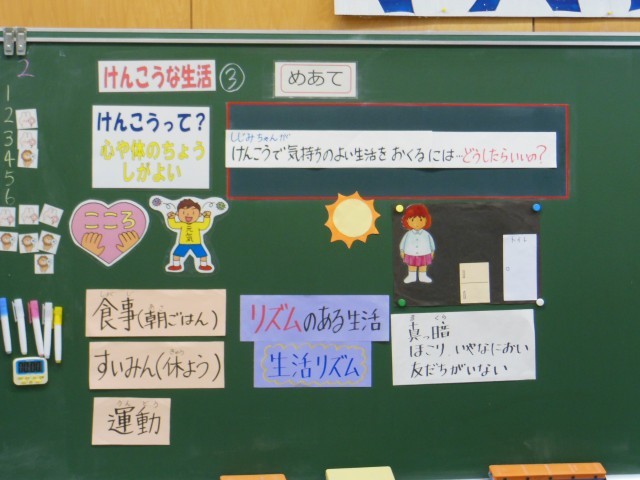 2
1
2
3
4
5
6
けんこうな生活
③
めあて
けんこうって？
心や体のちょう
しがよい
しじみちゃんが
けんこうで気持ちのよい生活をおくるには…どうしたらいいの？
こころ
元気
食事(朝ごはん)
すいみん(休よう)
運動
うんどう
リズムのある生活
生活リズム
真っ暗
ほこり、いやなにおい
友だちがいない